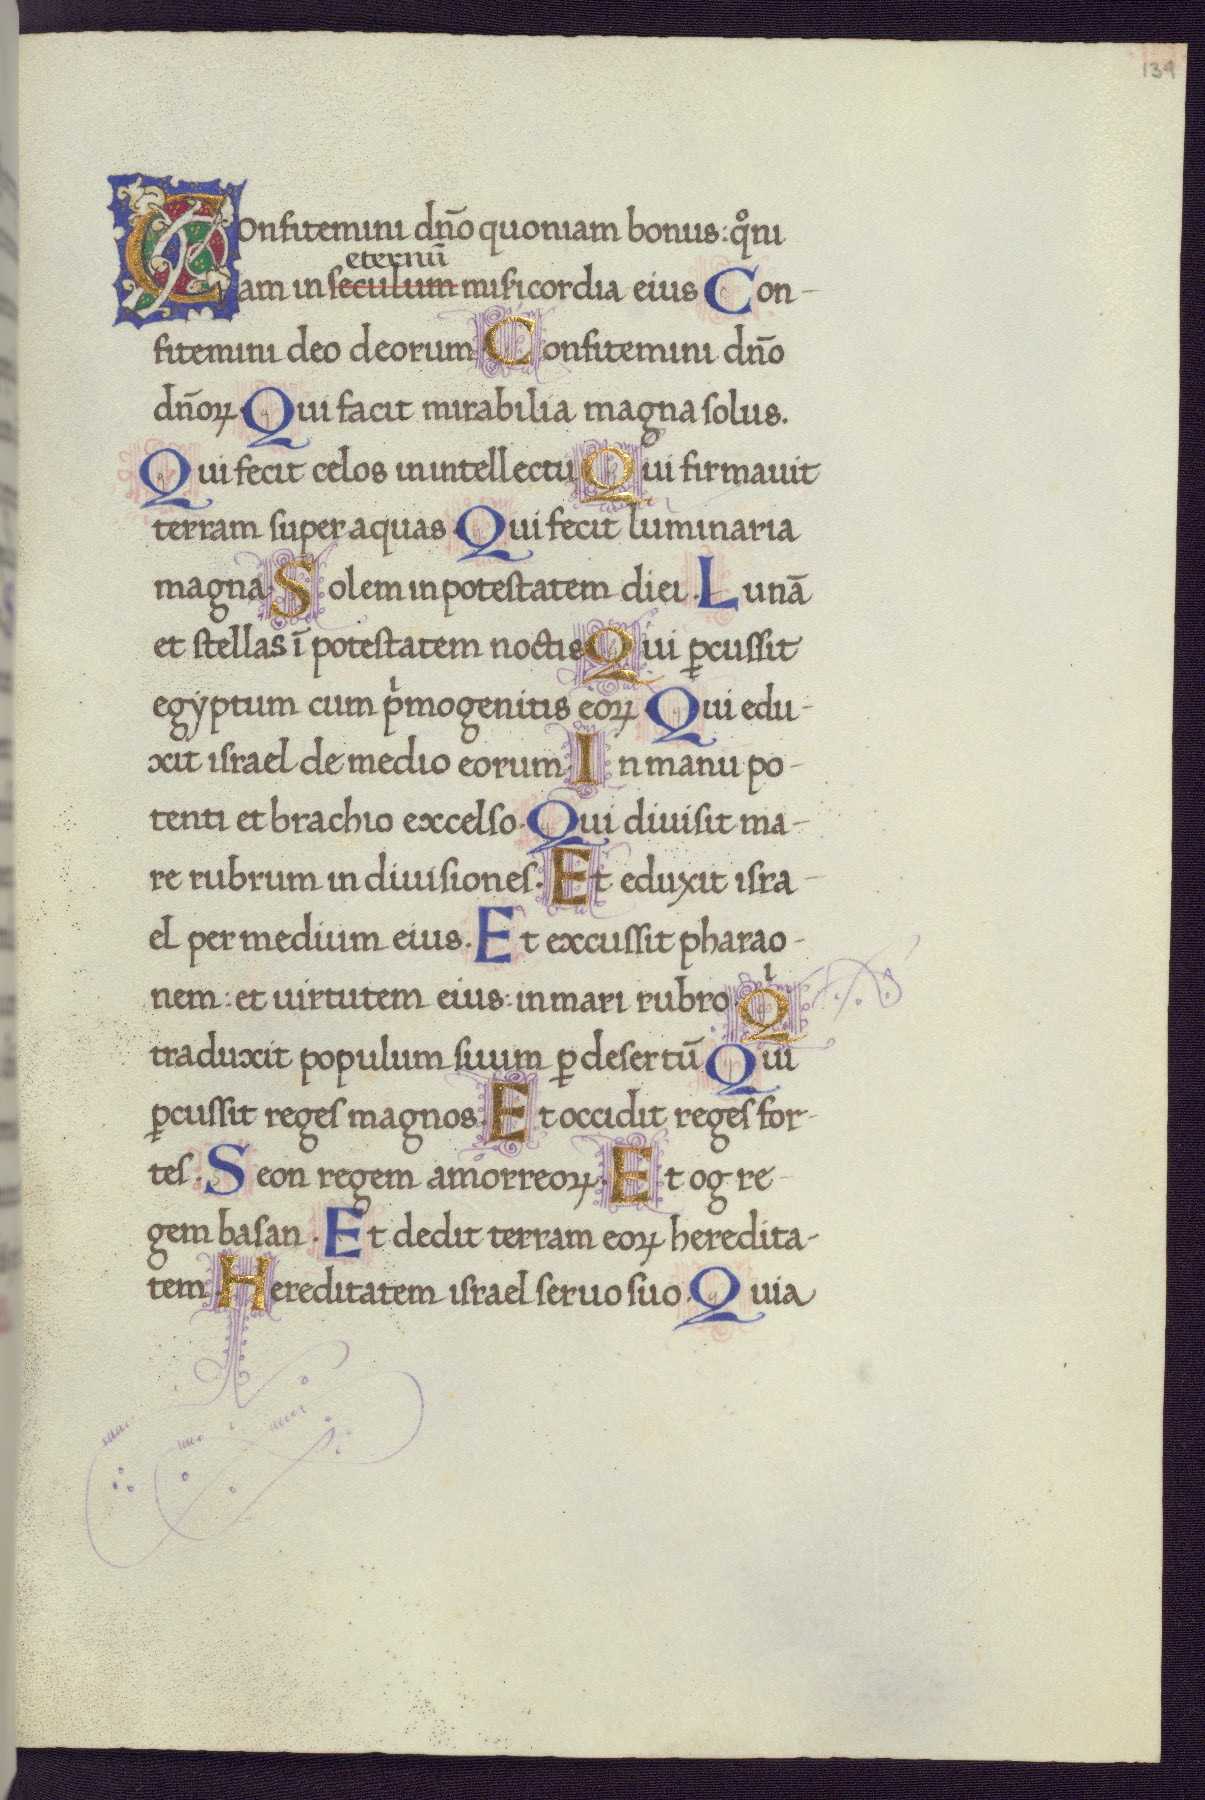 139
Confitemini dn̄o quoniam bonus: qͦni
eternū
am in seculum misericordia eius Con-
fitemini deo deorum Confitemini dn̄o
dn̄oꝝ. Qui facit mirabilia magna solus.
Qui fecit celos in intellectu Qui firmauit
terram super aquas Qui fecit luminaria
magna. Solem in potestatem diei. Lunā
et stellas ī potestatem noctis Qui ꝑcussit
egẏptum cum pͥmogenitis eoꝝ Qui edu-
xit israel de medio eorum. In manu po-
tenti et brachio excelso. Qui diuisit ma-
re rubrum in diuisiones. Et eduxit isra-
el per medium eius. Et excussit pharao-
nem: et uirtutem eius: in mari rubro. Qͥ
traduxit populum suum ꝑ desertū Qui
ꝑcussit reges magnos. Et occidit reges for-
tes. Seon regem amorreoꝝ. Et og re-
gem basan. Et dedit terram eoꝝ heredita-
tem. Hereditatem israel seruo suo. Quia